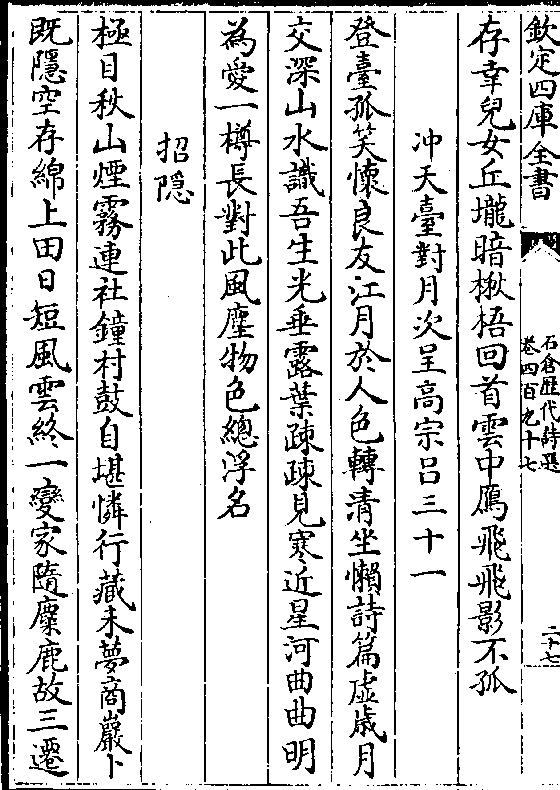 欽定四庫全書
石倉歷代詩選
卷四百九十七
二十七
存幸兒女丘壠暗楸梧回首雲中鴈飛飛影不孤
冲天臺對月次呈高宗呂三十一
登臺孤笑懷良友江月於人色轉清坐懶詩篇虛歲月
交深山水識吾生光垂露葉疎疎見寒近星河曲曲明
為愛一樽長對此風塵物色總浮名
招隱
極目秋山煙霧連社鐘村鼓自堪憐行藏未夢商巖卜
既隱空存綿上田日短風雲終一變家隋麋鹿故三遷